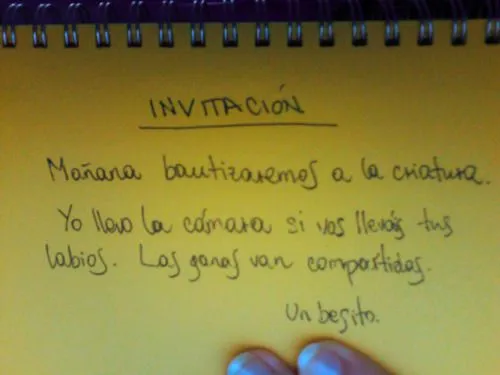 INVITACIÓN
Mañana bautizaremos a la criatura.
Yo llevo la cámara si vos llevás tus
labios. Las ganas van compartidas.
Un besito.